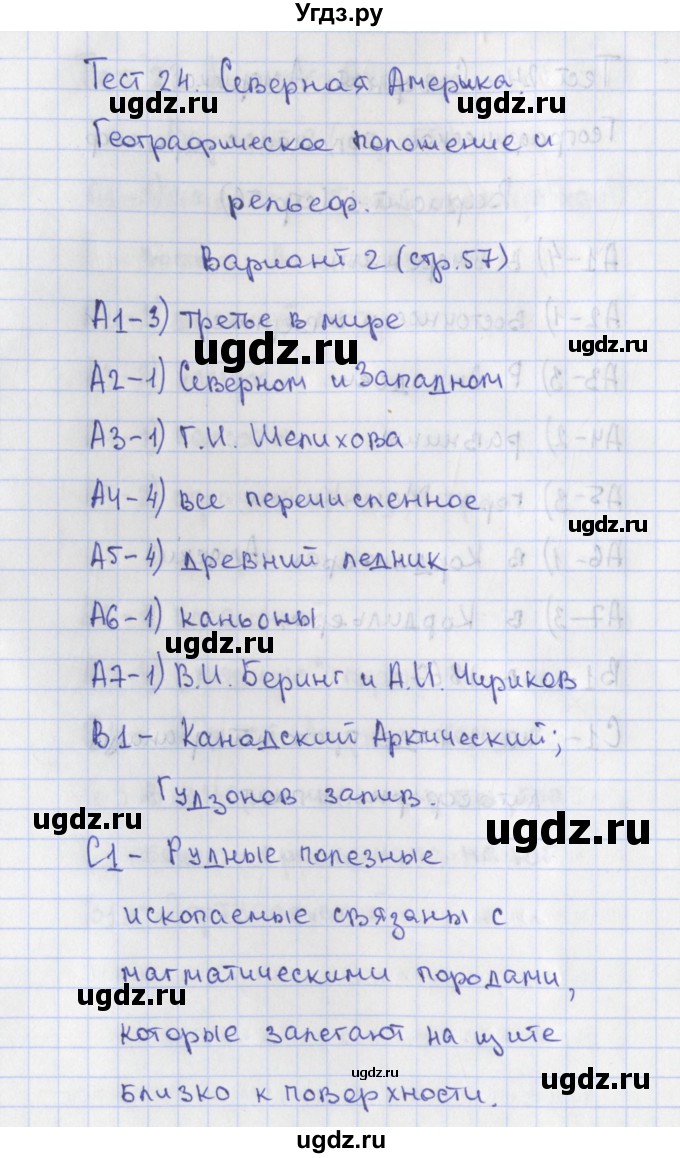 Угдз.ру
Тест 24. Северная Америка.
Географическое положение и
рельеф.
Вариант 2 (стр.57)
А1-3) третье в мире
А2-1) Северном и Западном
А3-1) Г.И. Шелихова
А4-4) все перечисленное
А5-4) древний ледник
А6-1) каньоны
А7-1) В.И. Беринг и А.И. Чириков
В1- Канадский Арктический;
Гудзонов залив.
С1- Рудные полезные
ископаемые связаны с
магматическими породами,
которые залегают на щите
близко к поверхности.
ugdz.ru
ugdz.ru
ugdz.ru
ugdz.ru
ugdz.ru
ugdz.ru
ugdz.ru
ugdz.ru
ugdz.ru
ugdz.ru
ugdz.ru
ugdz.ru